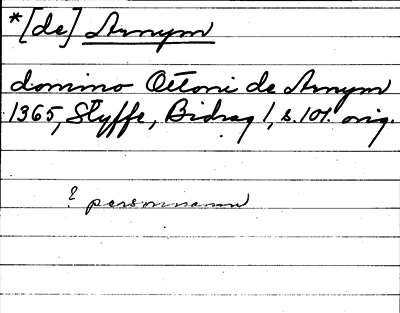 *[de] Arnym
domino Ottoni de Arnym
1365, Styffe, Bidrag 1, s. 101. orig.
? personnamn